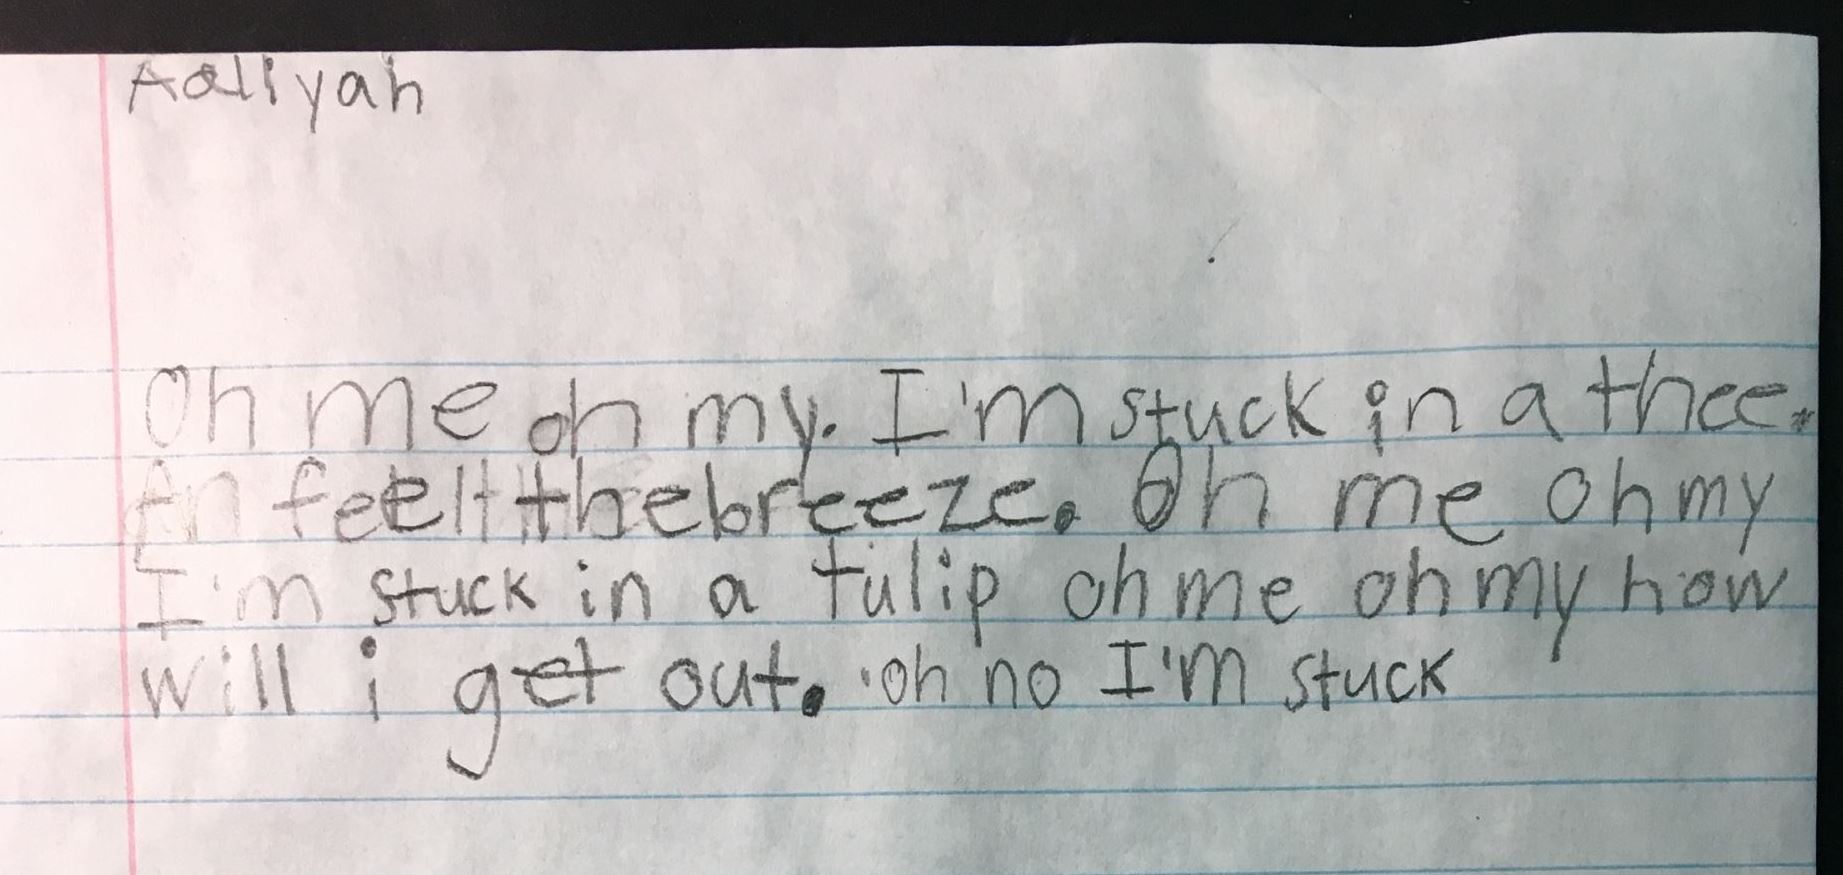 Aaliyah
Oh me oh my. I'm stuck in a thee.
An feelt the breeze. Oh me oh my
I'm stuck in a tulip oh me oh my how
will i get out. oh no I'm stuck